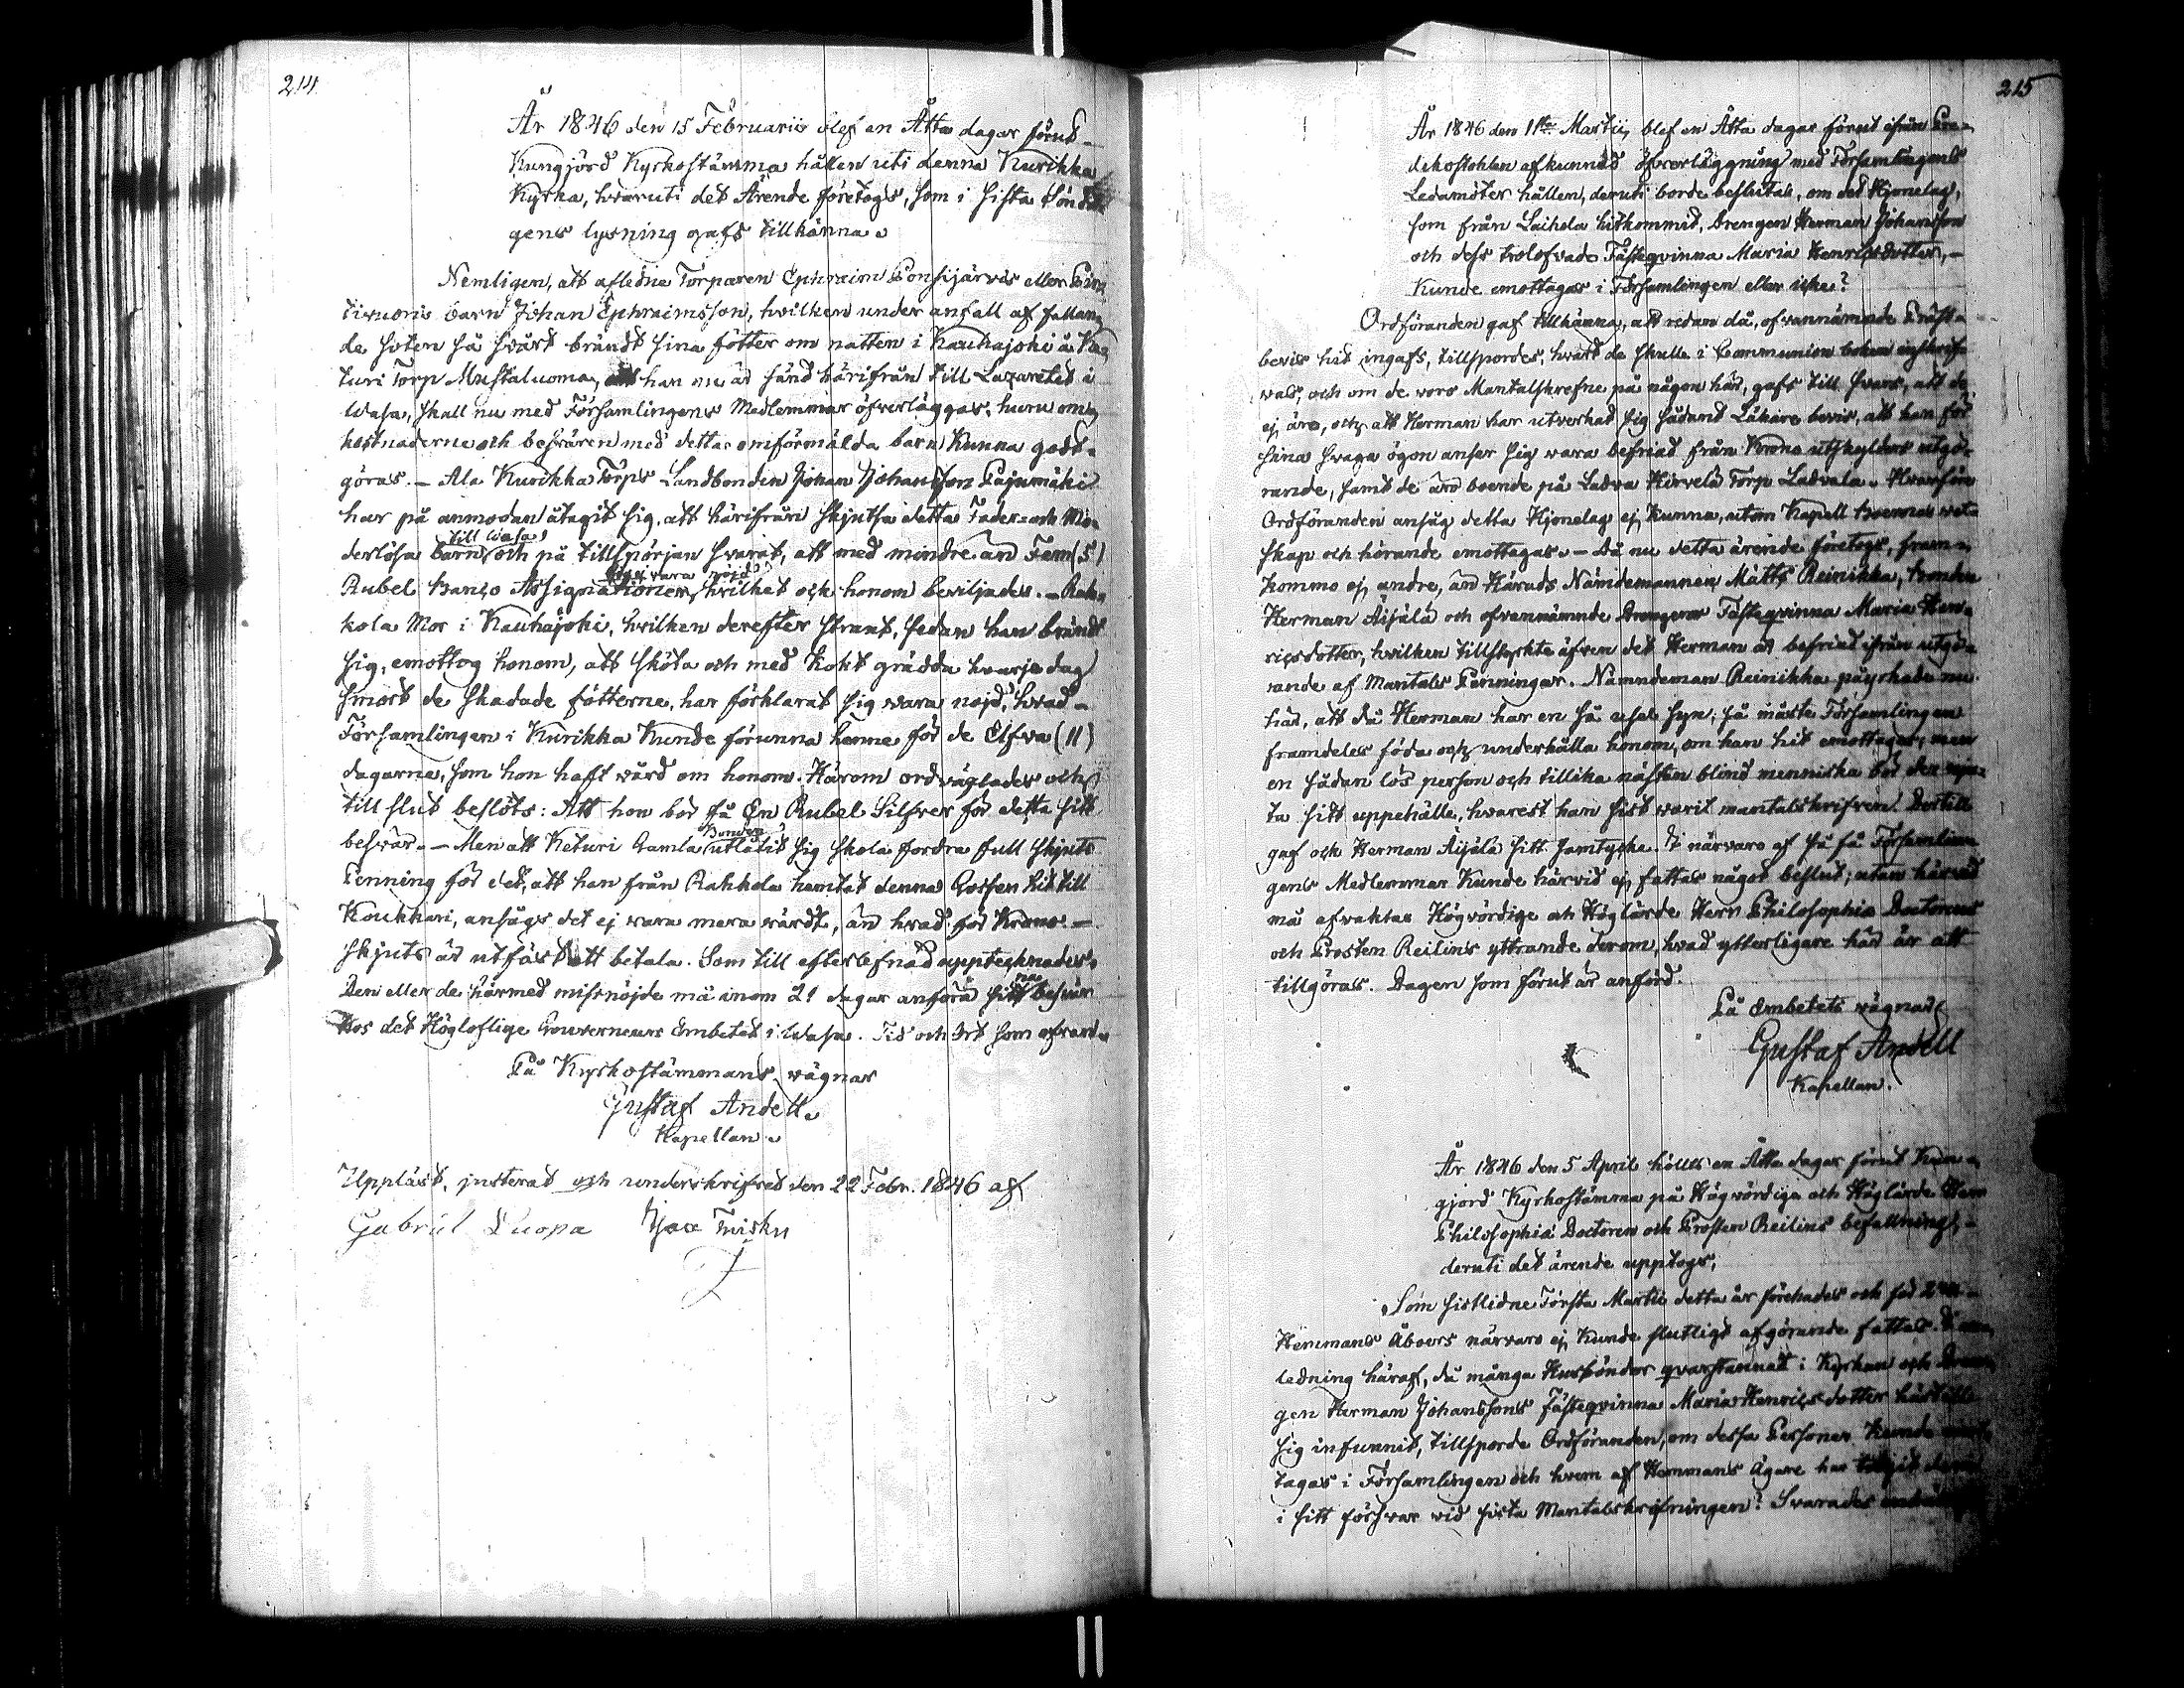 214
År 1846 den 15 Februarii blef en Åtta dagar förut-
Kungjord Kyrkostämma hållen uti denna Kurikka
Kyrka, hvaruti det Ärende företogs, som i sista Sönda-
gens lysning gafs tillkänna.
Nemligen, att aflidna Torparen Ephraim Ponsijärvis eller
barn Johan Ephraimsson, hvilken under anfall af fallan-
de soten så svårt brändt sina fötter om natten i Kauhajoki å Ke-
turi Torp Mustaluoma, att han nu är sänd härifrån till Lazarettet i
Wasa, skall nu med Församlingens Medlemmar öfverläggas, huru om-
kostnaderne och besvären med detta omförmälda barn Kunna godt-
göras. – Ala Kurikka Torps Landbonden Johan Johansson Pajumäki
har på anmodan åtagit sig, att härifrån skjutsa detta Fader- och Mo-
till Wasa,
derlösa barn, och på tillspörjan svarat, att med mindre än Fem (5)
ej vara nöjd
Rubel Banco Assignationer, hvilket ock honom beviljades. – Rah-
kola Mor i Kauhajoki, hvilken derefter strax, sedan han bränt
sig, emottog honom, att sköta och med kokt grädda hvarje dag
smort de skadade fötterne, har förklarat sig vara nöjd, hvad-
Församlingen i Kurikka Kunde förunna henne för de Elfva (11)
dagarna, som hon haft vård om honom. Härom ordväxlades och
till slut beslöts: Att hon bör få En Rubel Silfver för detta sitt
Bonden
besvär. – Men att Keturi Gamla utlåtit sig skola fordra full skjuts
Penning för det, att han från Rahkola hemtat denna Gossen hit till
Koukkari, ansågs det ej vara mera värdt, än hvad för Krono-
skjuts är utfäst att betala. Som till efterlefnad upptecknades.
na
Den eller de härmed missnöjde må inom 21 dagar anföra sitt besvär
hos det Högloflige Gouverneurs Embetet i Wasa. Tid och Ort som ofvan.
På Kyrkostämmans vägnar
Gustaf Andell.
Kapellan.
Uppläst, justerat och underskrifvet den 22 Febr. 1846 af
Gabriel Luopa
215
År 1846 den 1sta Martii, blef en Åtta dagar förut ifrån Pre-
dikostohlen afkunnad öfverläggning med Församlingens
Ledamöter hållen, deruti borde beslutas, om det Hjonelag,
som från Laihela hitkommit, Drengen Herman Johansson
och dess trolofvade Fästeqvinna Maria Henricsdotter, –
Kunde emottagas i Församlingen eller icke?
Ordföranden gaf tillkänna, att redan då, ofvannämnde Präst-
bevis hit ingafs, tillspordes, hvart de skulle i Communion boken inskrif-
vas, och om de voro Mantalskrefne på någon här, gafs till svars, att de
ej äro, och att Herman har utverkat sig sådant Läkare bevis, att han för
sina svaga ögon anser sig vara befriad från Krono utskylders utgö-
rande, samt de äro boende på Ladva Hirvelä Torp Ladvala. Hvarföre
Ordföranden ansåg detta Hjonelag ej Kunna, utom Kapell Boernas vet-
skap och hörande emottagas. – Då nu detta ärende företogs, fram-
kommo ej andre, än Härads Nämdemannen Matts Reinikka, Bonden
Herman Äijälä och ofvannämnde Drengens Fästeqvinna Maria Hen-
ricsdotter, hvilken tillstyrkte äfven det Herman är befriad ifrån utgö-
rande af Mantals Penningar. Nämndeman Reinikka påyrkade nu
här, att då Herman har en så usel syn, så måste Församlingen
framdeles föda och underhålla honom, om han hit emottages; men
en sådan lös person och tillika nästan blind menniska bör der
ta sitt uppehälle, hvarest han sist varit mantalskrifven. Dertill
gaf ock Herman Äijälä sitt samtycke. I närvaro af så få Församlin-
gens Medlemmar Kunde härvid ej fattas något beslut; utan härvid
må afvaktas Högvördige och Höglärde Herr Philosophiæ Doctorens
och Prosten Reilins yttrande derom, hvad ytterligare här är att
tillgöras. Dagen som förut är anförd.
På Embetets vägnar
Gustaf Andell
Kapellan.
År 1846 den 5 April hölls en Åtta dagar förut Kun-
gjord Kyrkostämma på Högvördige och Höglärde Herr
Philosophiæ Doctoren och Prosten Reilins befallning, –
deruti det ärende upptogs,
Som sistlidne Första Martii detta år förehades och för
Hemmans Åboers närvaro ej Kunde slutligt afgörande fattas.
ledning häraf, då många Husbönder qvarstannat i Kyrkan och Dren-
gen Herman Johanssons Fästeqvinna Maria Henricsdotter härtill
sig infunnit, tillsporde Ordföranden, om dessa Personer Kunde emot-
tagas i Församlingen och hvem af Hemmans Ägare har
i sitt försvar vid sista Mantalskrifningen? Svarades